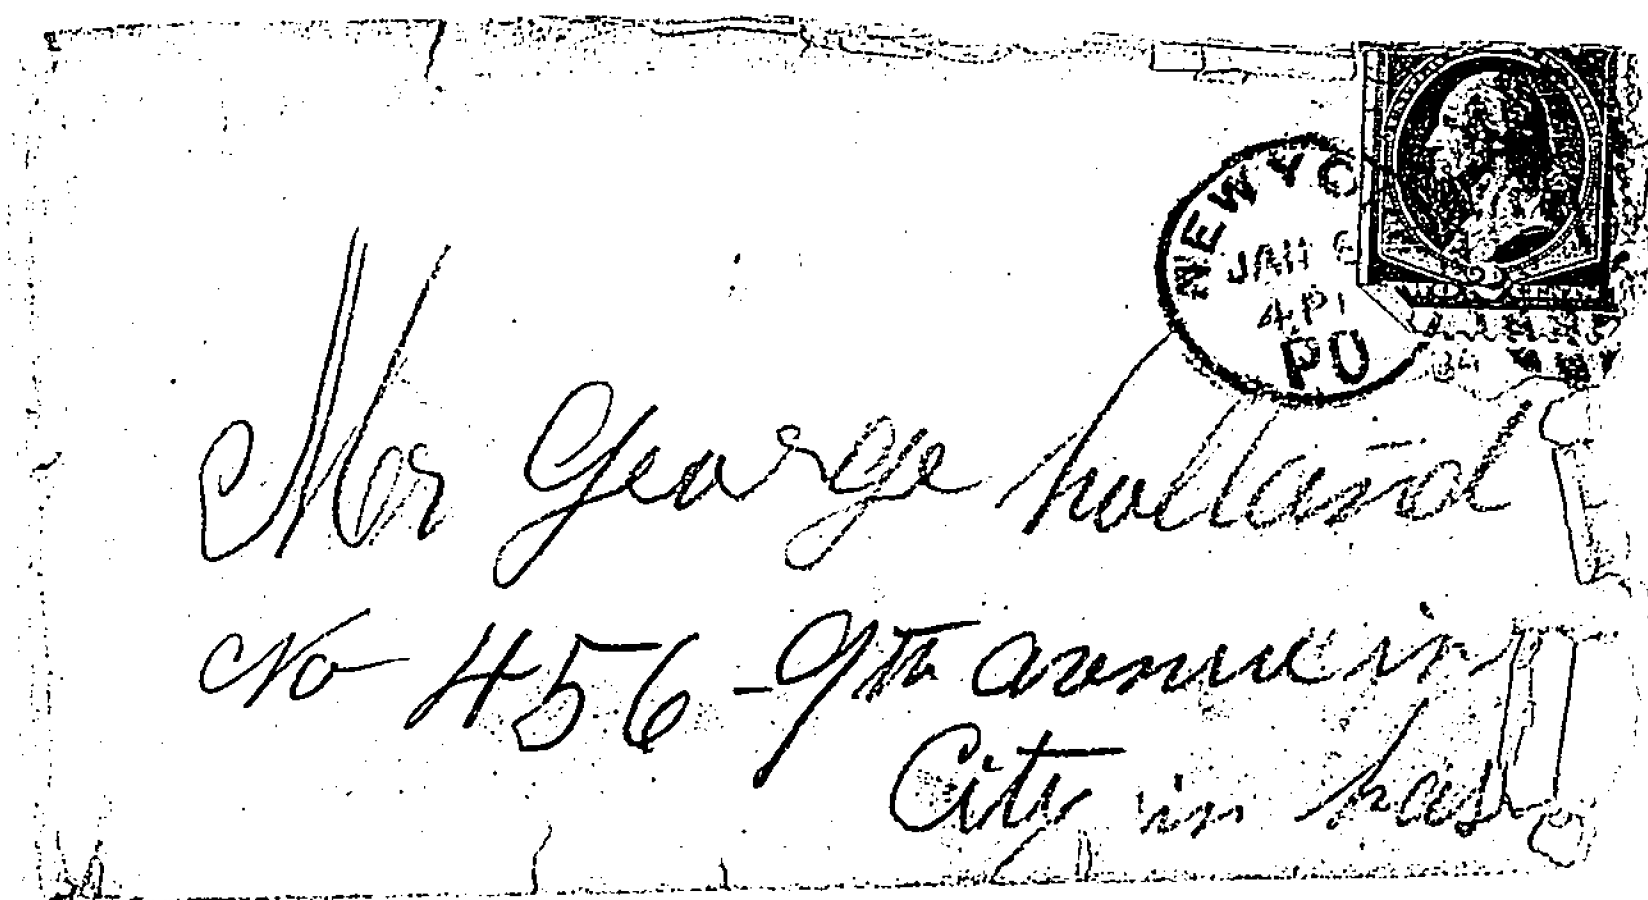 NEW YO
JAN
4 P
PO
2
Mr George holland
No 456 - 9th avenue in
City in has